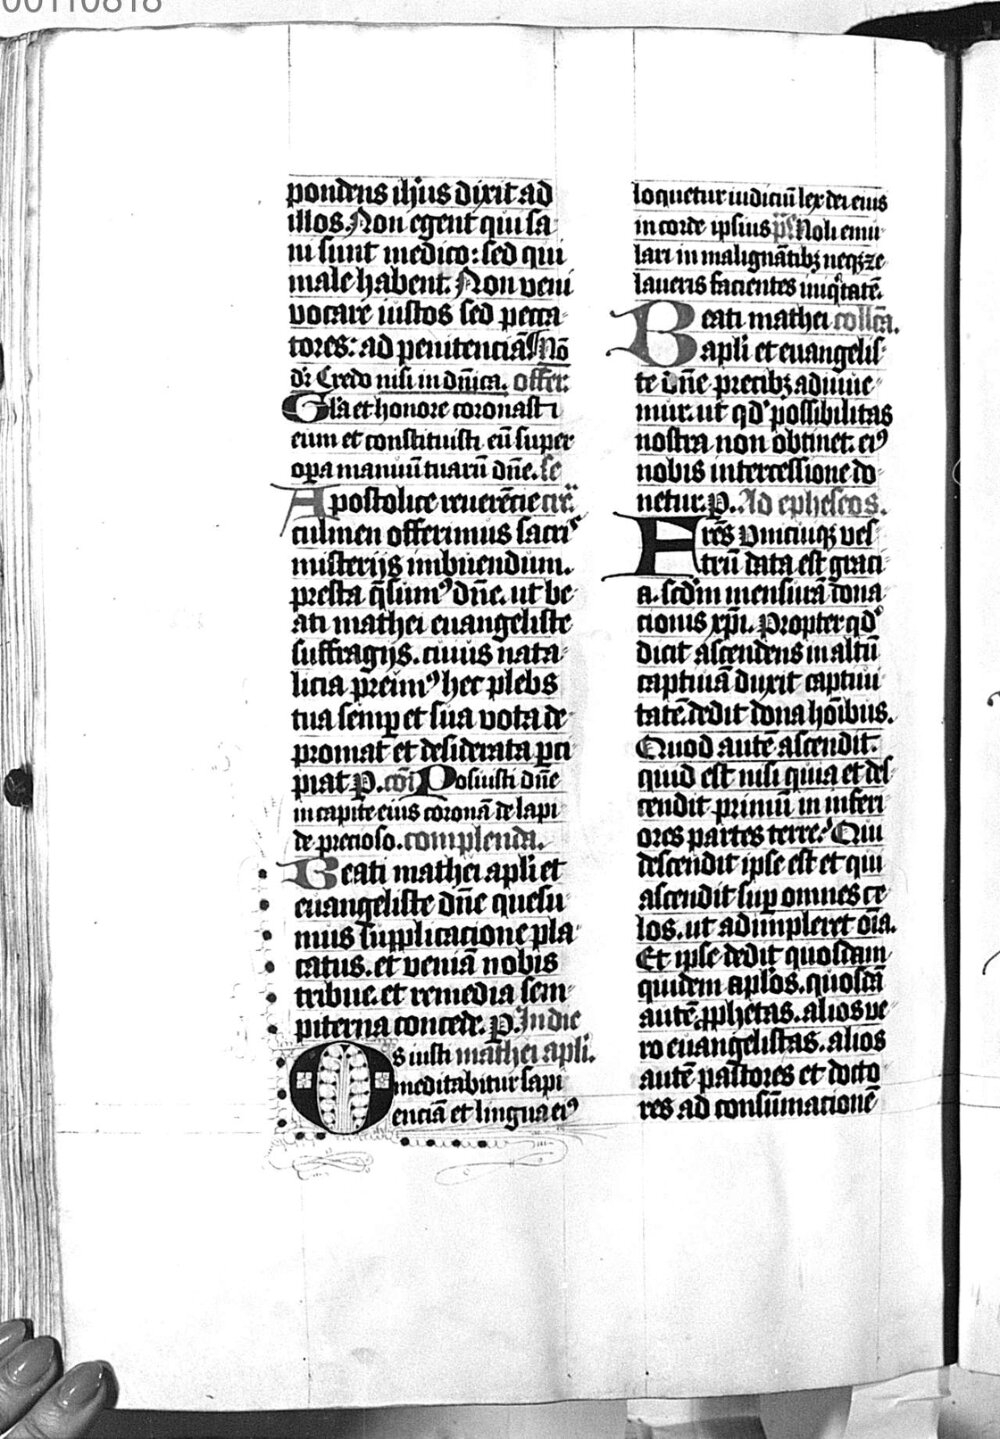 00110818
pondens ihūs dixit ad
illos. Non egent qui sa
ni sunt medico: sed qui
male habent. Non veni
vocare iustos sed pecca
tores: ad penitenciā. Nō
dr̄ Credo nisi in dn̄ica. offer.
Gl̄a et honore coronasti
eum et constituisti eū super
opa manuū tuarū dn̄e. se
Apostolice reuerēcie cre᷑
culmen offerimus sacri
misterijs imbuendum.
presta q̄sumꝰ dn̄e. ut be
ati mathei euangeliste
suffragijs. cuius nata
licia preimꝰ hec plebs
tua semꝑ et sua vota de
promat et desiderata ꝑci
piat P. cōi Posuisti dn̄e
in capite eius coronā de lapi
de precioso. complenda.
Beati mathei apl̄i et
euangeliste dn̄e quesu
mus supplicacione pla
catus. et veniā nobis
tribue. et remedia sem
piterna concede. P. In die
Os iusti mathei apl̄i.
meditabitur sapi
enciā et lingua eiꝰ
loquetur iudiciū lex dei eius
in corde ipsius p̄s Noli emu
lari in malignātibꝫ neqꝫ ze
laueris facientes iniq̇tatē.
Beati mathei coll̄ca.
apl̄i et euangelis
te dn̄e precibꝫ adiuue
mur. ut qd̓ possibilitas
nostra non obtinet. eiꝰ
nobis intercessione do
netur. P. Ad ephesios.
Frēs Vnicuiqꝫ ves
trū data est graci
a. scd̄m mensurā dona
cionis xp̄i. Propter qd̓
dicit ascendens in altū
captiuā duxit captiui
tatē. dedit dona hoībus.
Quod autē ascendit.
quid est nisi quia et des
cendit primū in inferi
ores partes terre? Qui
descendit ipse est et qui
ascendit suꝑ omnes ce
los. ut adimpleret oīa.
Et ipse dedit quosdam
quidem apl̄os. quosdā
autē ꝓphetas. alios ve
ro euangelistas. alios
autē pastores et docto
res ad consūmacionē